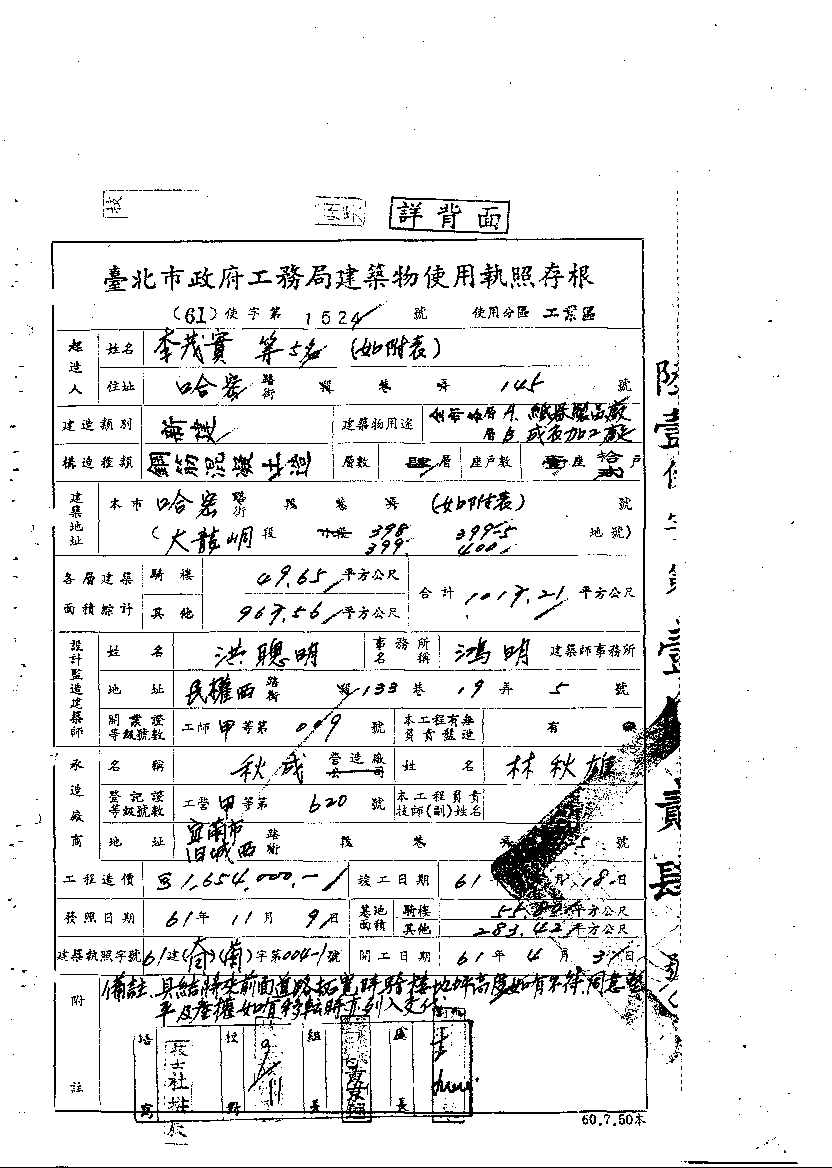 詳背面
臺北市政府工務局建築物使用執照存根
(61)使字第1524號 使用分區 工業區
起造人 姓名 李茂實 等5名 (如附表)
住址 哈密 路街 段 巷 弄 145 號
建造類別 新建 建築物用途 層A.紙器製品廠
層B.成衣加工廠
構造種類 鋼筋混凝土造 層數 肆層 座戶數 壹座 拾貳戶
建築地址 本市 哈密 路街 段 巷 弄 (如附表) 號
(大龍峒段 小段 398 399-5 地號)
399 400
各層建築面積綜計 騎樓 49.65 平方公尺 合計 1017.21 平方公尺
其他 967.56 平方公尺
設計監造建築師 姓名 洪聰明 事務所名稱 鴻明 建築師事務所
地址 民權西 路街 段 133 巷 19 弄 5 號
開業證等級號數 工師甲等第 009 號 本工程有無負責監造 有
承造廠商 名稱 秋成 營造廠公司 姓名 林秋雄
登記證等級號數 工營甲等第 620 號 本工程負責技師(副)姓名
地址 宜蘭市旧城西 路街 段 巷 弄 5 號
工程造價 1,654,000.- 竣工日期 61年 月 18日
發照日期 61年11月9日 基地面積 騎樓 平方公尺
其他 283.42 平方公尺
建築執照字號 61建( )( )字第004-1號 開工日期 61年4月3日
附註 備註 具結將來前面道路拓寬時騎樓地坪高度如有不符同意整
平及產權如有移転時亦列入交代
填寫 校對 組長 處長
60.7.50本